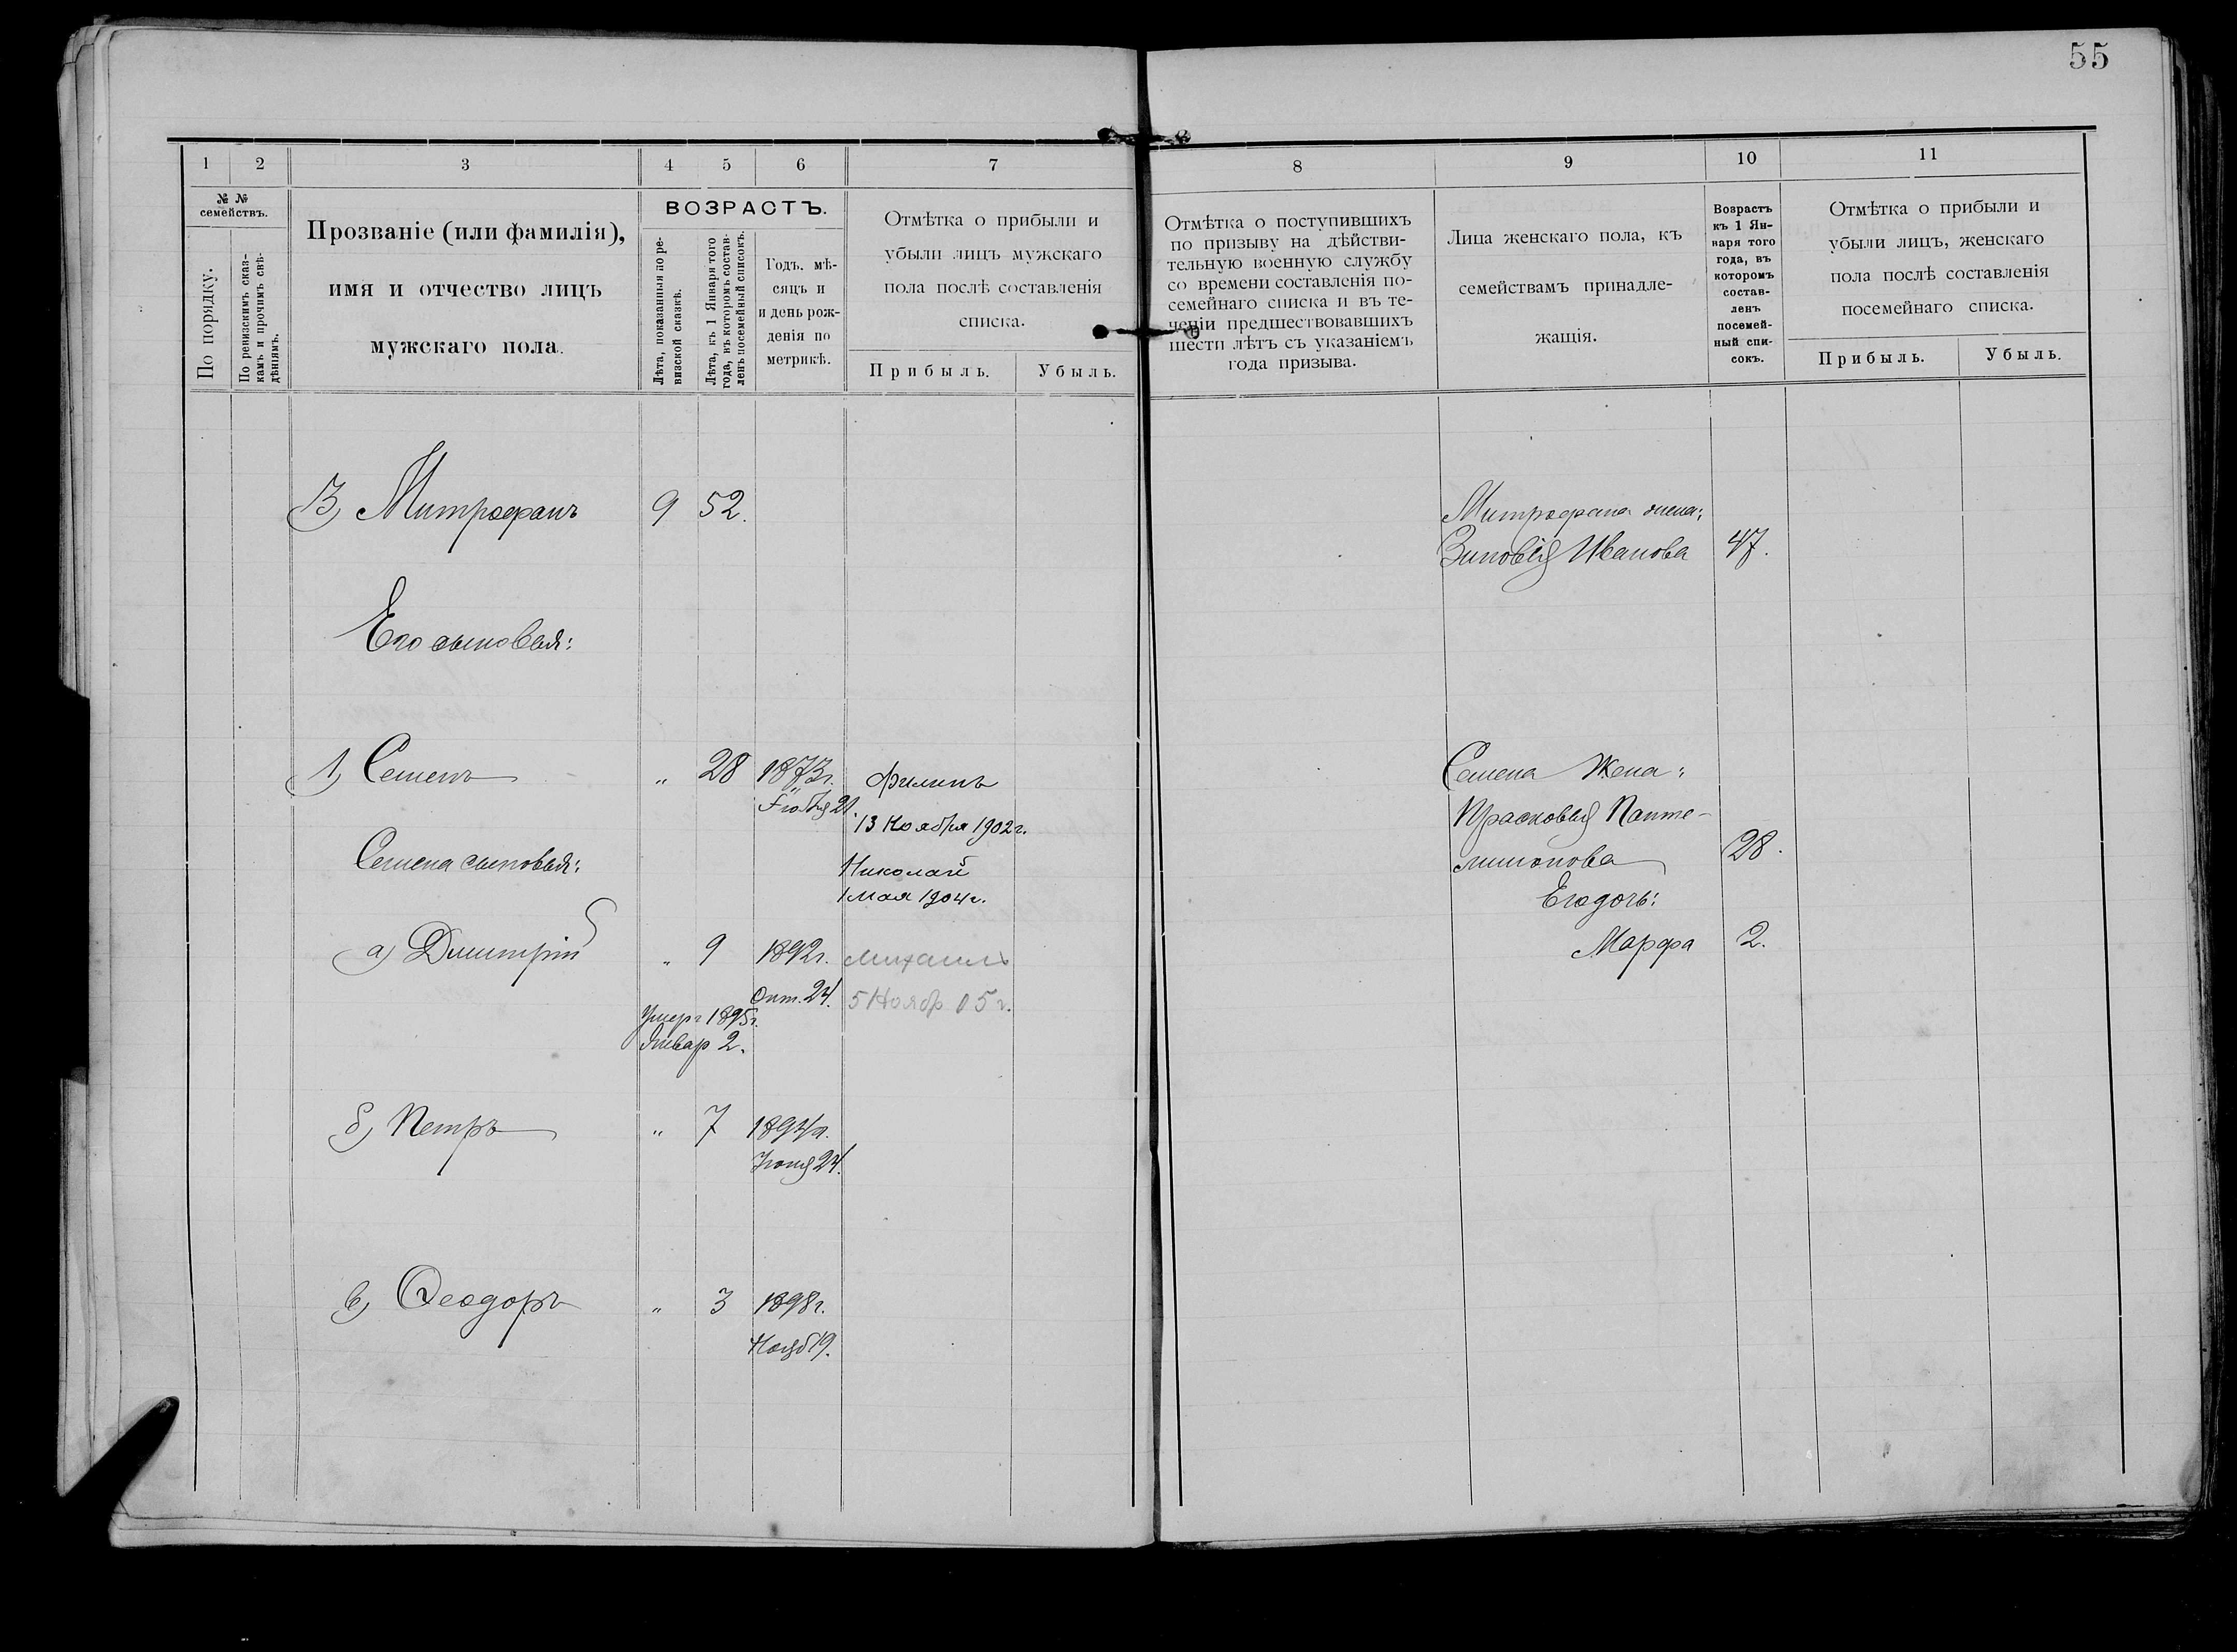 55
1 2 3 4 5 6 7
№ №
семействъ.
По порядку.
По ревизскимъ сказ-
камъ и прочимъ свѣ-
дѣніямъ.
Прозваніе (или фамилія),
имя и отчество лицъ
мужскаго пола.
ВОЗРАСТЪ.
Лѣта, показанныя по ре-
визской сказкѣ.
Лѣта, къ 1 Января того
года, въ которомъ состав-
ленъ посемейный списокъ.
Годъ, мѣ-
сяцъ и
и день рож-
денія по
метрикѣ.
Отмѣтка о прибыли и
убыли лицъ мужскаго
пола послѣ составленія
списка.
Прибыль. Убыль.
3) Митрофанъ 9 52.
Его сыновья:
1) Семенъ „ 28 1873г.
21.
Филипъ
13 Ноября 1902г.
Семена сыновья:
Николай
1 Мая 1904г.
а) Димитрій „ 9 1892г.
Окт. 24.
Михаилъ
5 Нояб 05г.
Умеръ 1895г.
Январ 2.
б) Петръ „ 7 1894г.
Іюня 24.
в) Ѳеодоръ „ 3 1898г.
Нояб 19.
8 9 10 11
Отмѣтка о поступившихъ
по призыву на дѣйстви-
тельную военную службу
со времени составленія по-
семейнаго списка и въ те-
ченіи предшествовавшихъ
шести лѣтъ съ указаніемъ
года призыва.
Лица женскаго пола, къ
семействамъ принадле-
жащія.
Возрастъ
къ 1 Ян-
варя того
года, въ
которомъ
состав-
ленъ
посемей-
ный спи-
сокъ.
Отмѣтка о прибыли и
убыли лицъ, женскаго
пола послѣ составленія
посемейнаго списка.
Прибыль. Убыль.
Митрофана жена:
Зиновія Иванова 47.
Семена жена:
Прасковья Панте-
лимонова 28.
Его дочь:
Марфа 2.